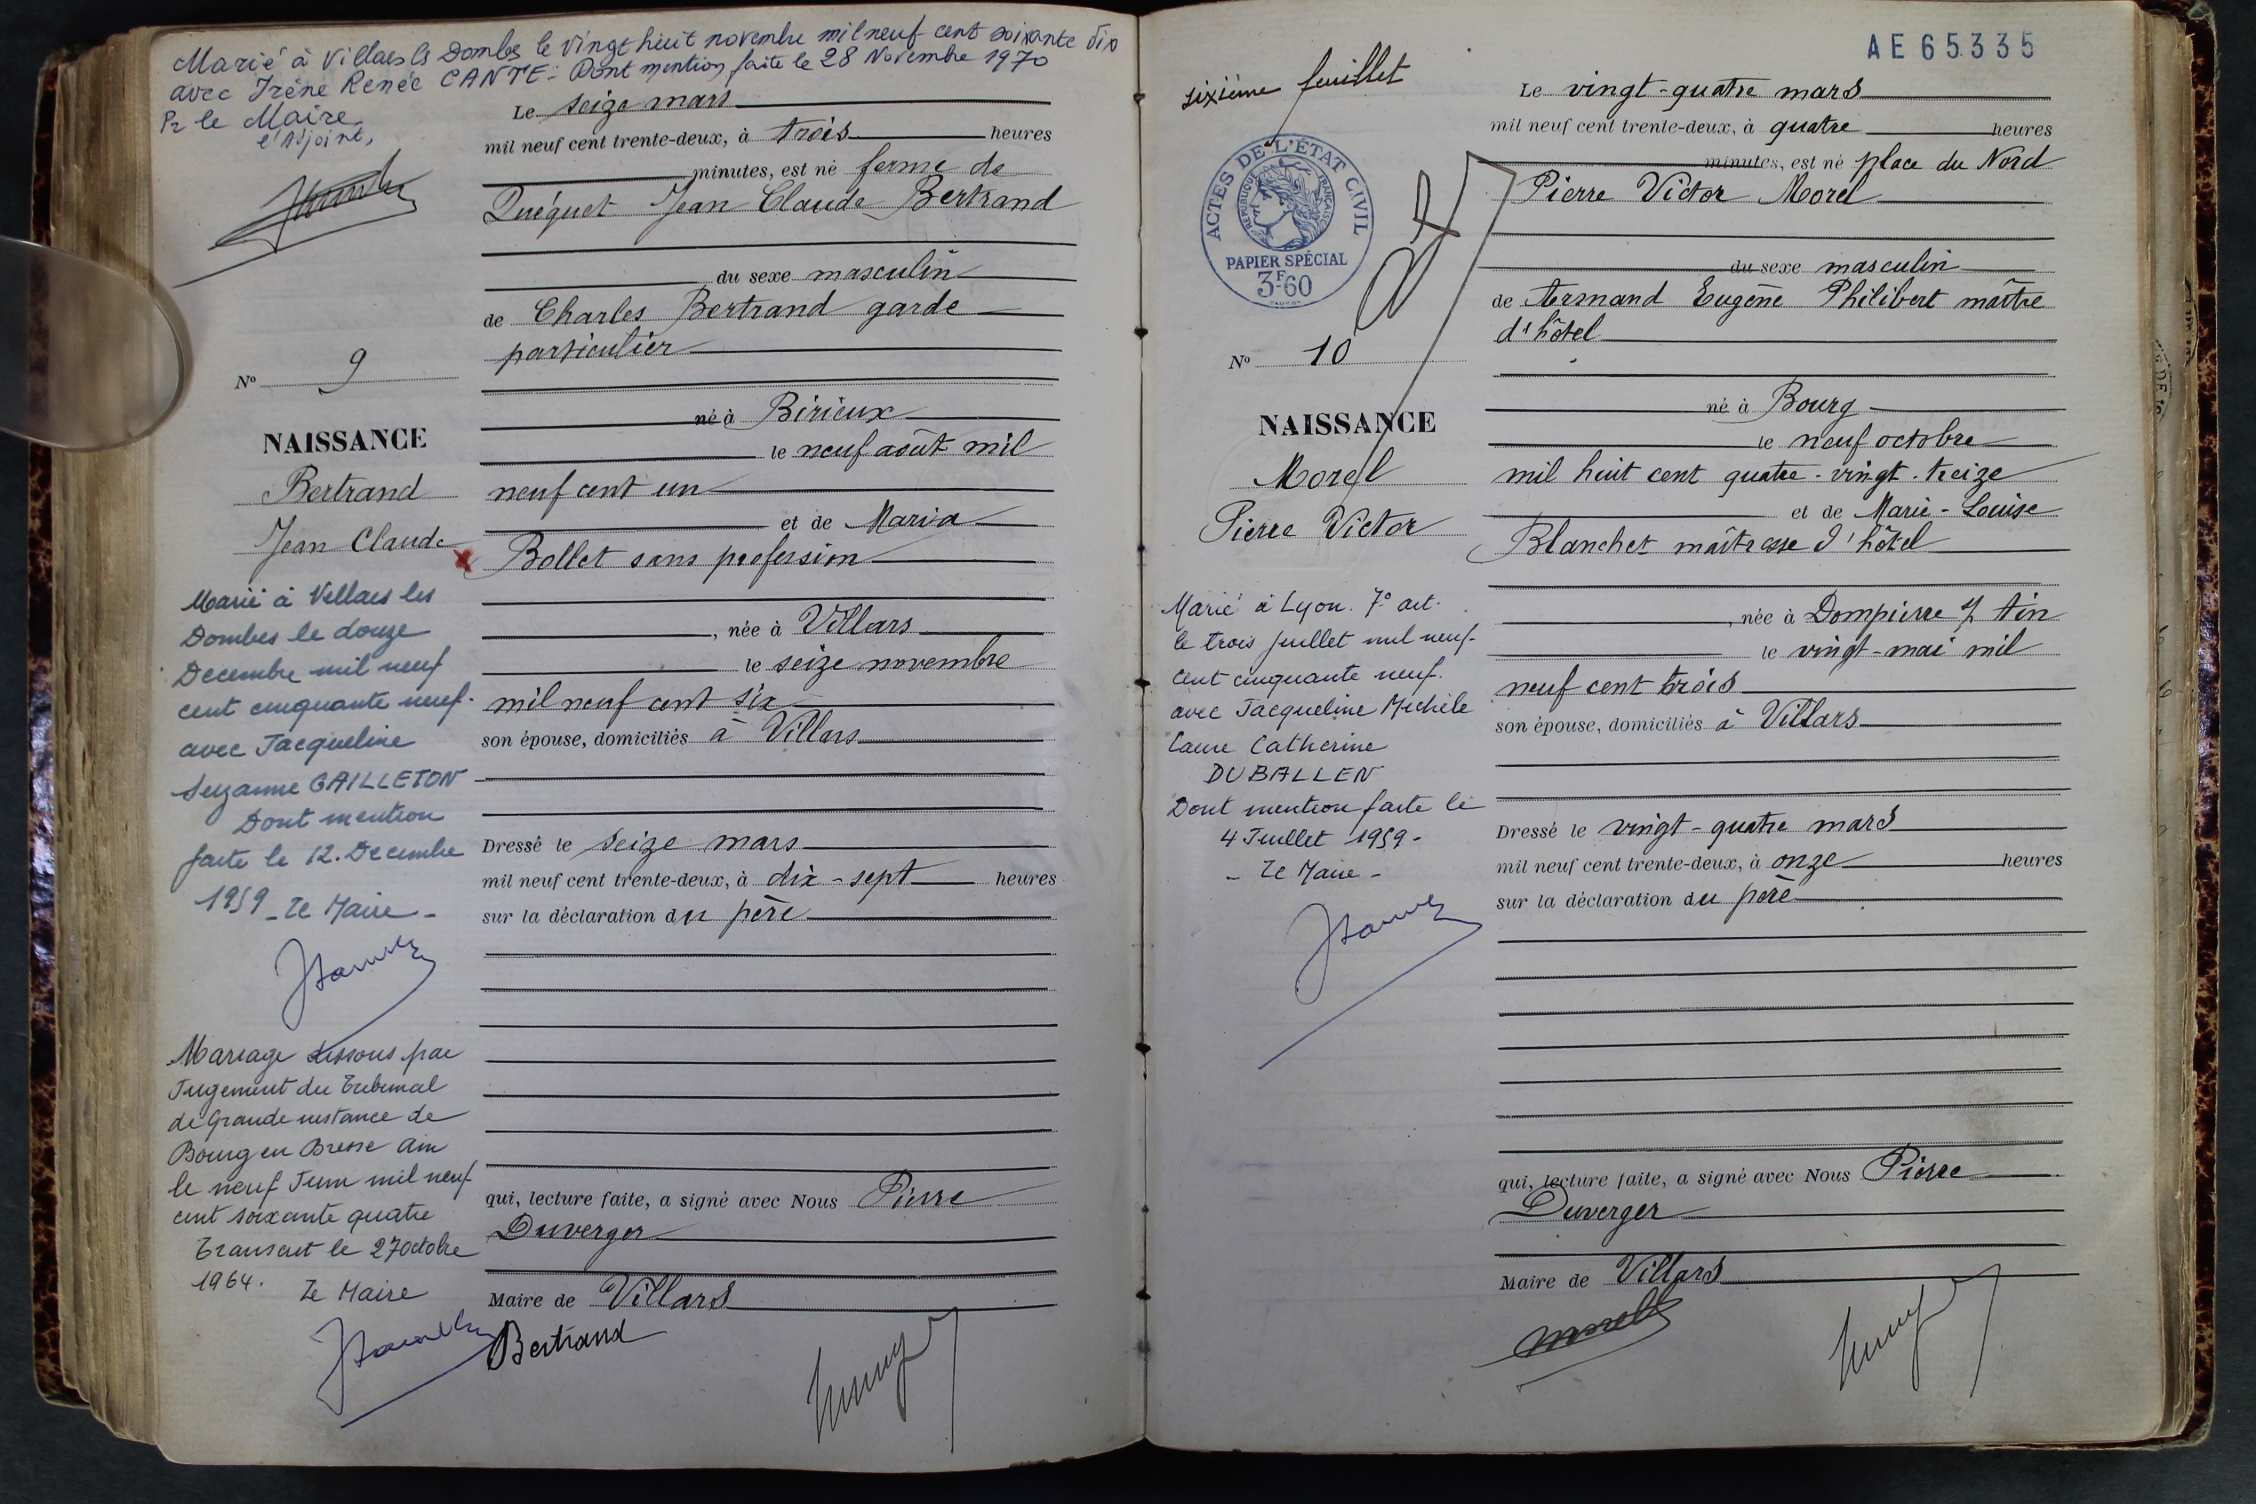 Marié à Villars les Dombes le vingt huit novembre mil neuf cent soixante dix
avec Irène Renée CANTE. Dont mention faite le 28 Novembre 1970
Pr le Maire
l'Adjoint,
Le seize mars
mil neuf cent trente-deux, à trois heures
minutes, est né ferme de
Quéguet Jean Claude Bertrand
du sexe masculin
de Charles Bertrand garde
particulier
né à Birieux
le neuf août mil
neuf cent un
et de Maria
Bollet sans profession
, née à Villars
le seize novembre
mil neuf cent six
son épouse, domiciliés à Villars
Dressé le seize mars
mil neuf cent trente-deux, à dix-sept heures
sur la déclaration du père
qui, lecture faite, a signé avec Nous Pierre
Duverger
Maire de Villars
Bertrand
No 9
NAISSANCE
Bertrand
Jean Claude
Marié à Villars les
Dombes le douze
Decembre mil neuf
cent cinquante neuf.
avec Jacqueline
Suzanne GAILLETON
Dont mention
faite le 12. Decembre
1959 _ Le Maire _
Mariage dissous par
Jugement du Tribunal
de Grande instance de
Bourg en Bresse Ain
le neuf Juin mil neuf
cent soixante quatre
Transcrit le 27 octobre
1964. Le Maire
sixième feuillet
AE65335
ACTES DE L'ÉTAT CIVIL
RÉPUBLIQUE FRANÇAISE
PAPIER SPÉCIAL
3F60
No 10
NAISSANCE
Morel
Pierre Victor
Marié à Lyon. 7e art.
le trois Juillet mil neuf-
cent cinquante neuf.
avec Jacqueline Michèle
Laure Catherine
DUBALLEN
Dont mention faite le
4 Juillet 1959 -
- Le Maire -
Le vingt-quatre mars
mil neuf cent trente-deux, à quatre heures
minutes, est né place du Nord
Pierre Victor Morel
du sexe masculin
de Armand Eugène Philibert maître
d'hôtel
né à Bourg
le neuf octobre
mil huit cent quatre-vingt-treize
et de Marie-Louise
Blanchet maîtresse d'hôtel
, née à Dompierre s/ Ain
le vingt-mai mil
neuf cent trois
son épouse, domiciliés à Villars
Dressé le vingt-quatre mars
mil neuf cent trente-deux, à onze heures
sur la déclaration du père
qui, lecture faite, a signé avec Nous Pierre
Duverger
Maire de Villars